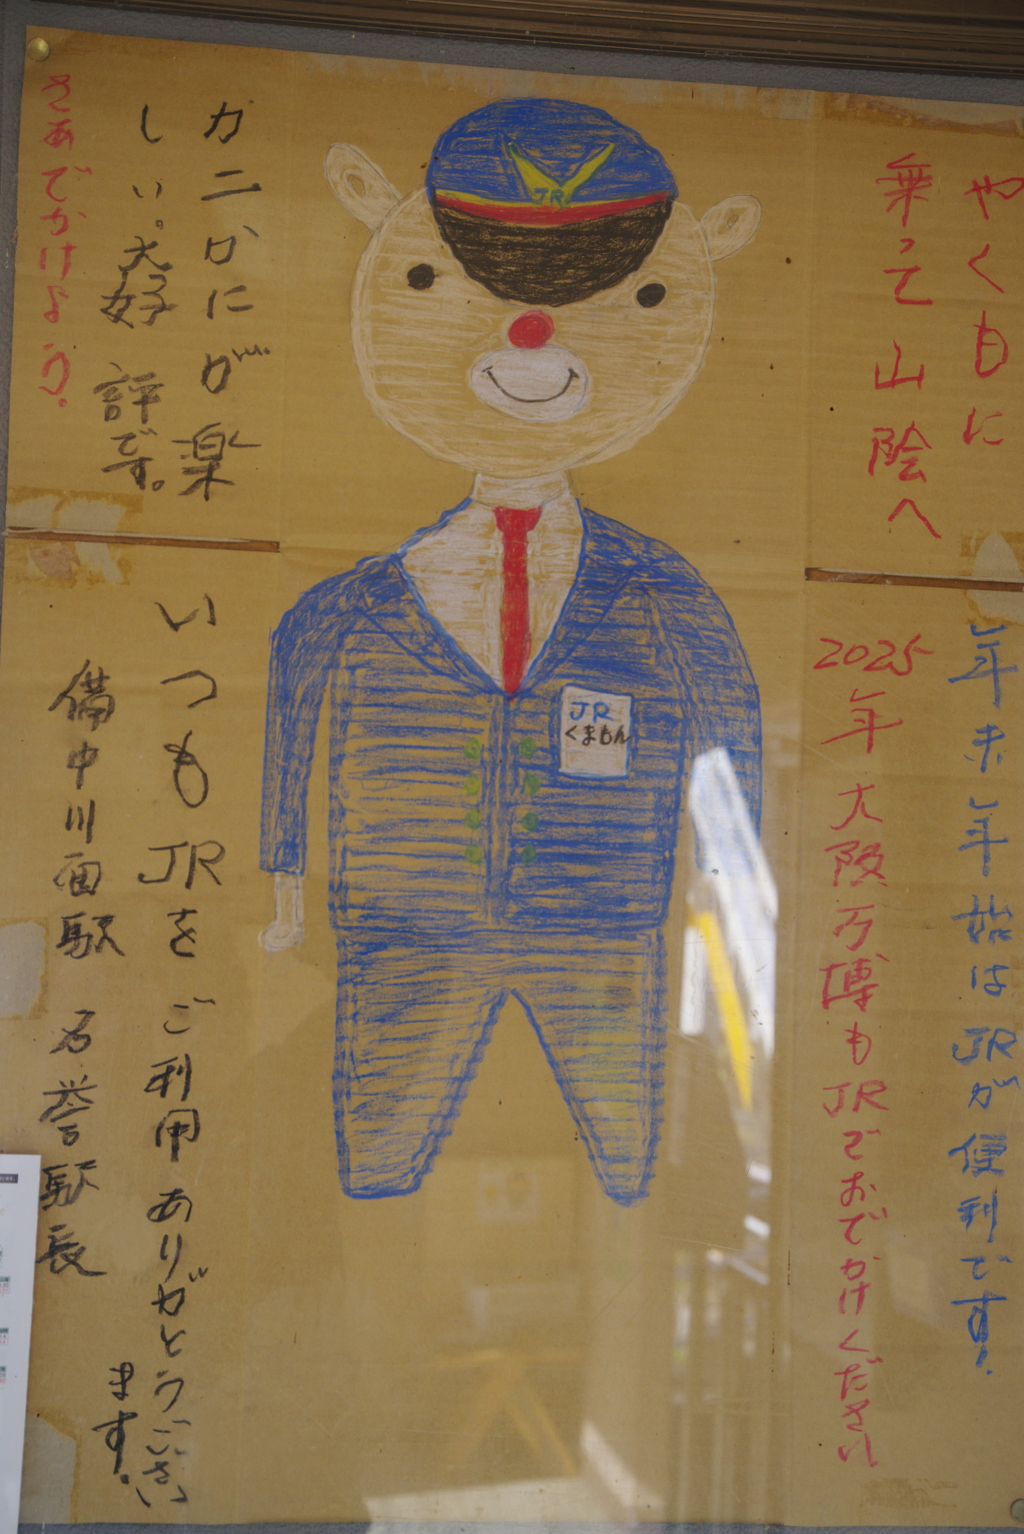 やくもに
乗って山陰へ
年末年始はJRが便利です。
2025年大阪万博もJRでおでかけください
JR
JR
くまもん
カニかにが楽
しい。大好評です。
さあでかけよう。
いつもJRをご利用ありがとうござい
ます。
備中川面駅 名誉駅長